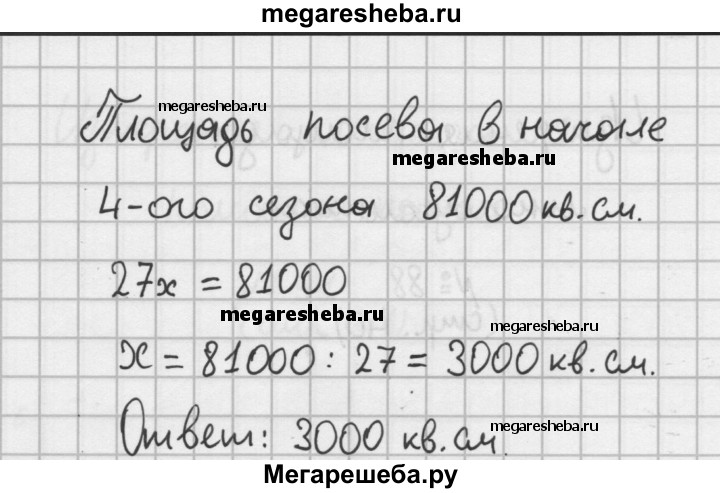 megaresheba.ru
megaresheba.ru
Площадь посева в начале
megaresheba.ru
4-ого сезона 81000 кв.см.
27х = 81000
megaresheba.ru
megaresheba.ru
х = 81000 : 27 = 3000 кв.см.
Ответ: 3000 кв.см.
megaresheba.ru
Мегарешеба.ру